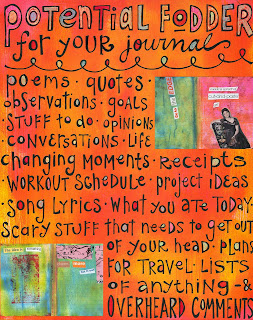 POTENTIAL FODDER
for YOUR journal
poems · quotes
observations · goals
STUFF to do · opinions
CONVERSATIONS · LIFE
changing Moments · Receipts
· WORKOUT SCHEDULE · project ideas
· SONG LYRICS · What you ate TODAY
SCARY STUFF that needs to get out
OF YOUR HEAD · plans
FOR TRAVEL · LISTS
OF anything · &
OVERHEARD COMMENTS